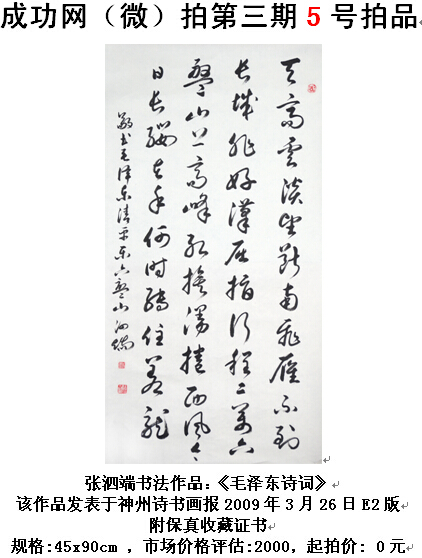 成功网（微）拍第三期5号拍品
天高雲淡望斷南飛雁不到
长城非好漢屈指行程二萬六
盤山上高峰红旗漫捲西风今
日长缨在手何时缚住苍龍
敬书毛泽东清平乐六盘山 泗端
张泗端书法作品：《毛泽东诗词》
该作品发表于神州诗书画报2009年3月26日E2版
附保真收藏证书
规格:45x90cm ，市场价格评估:2000，起拍价: 0元